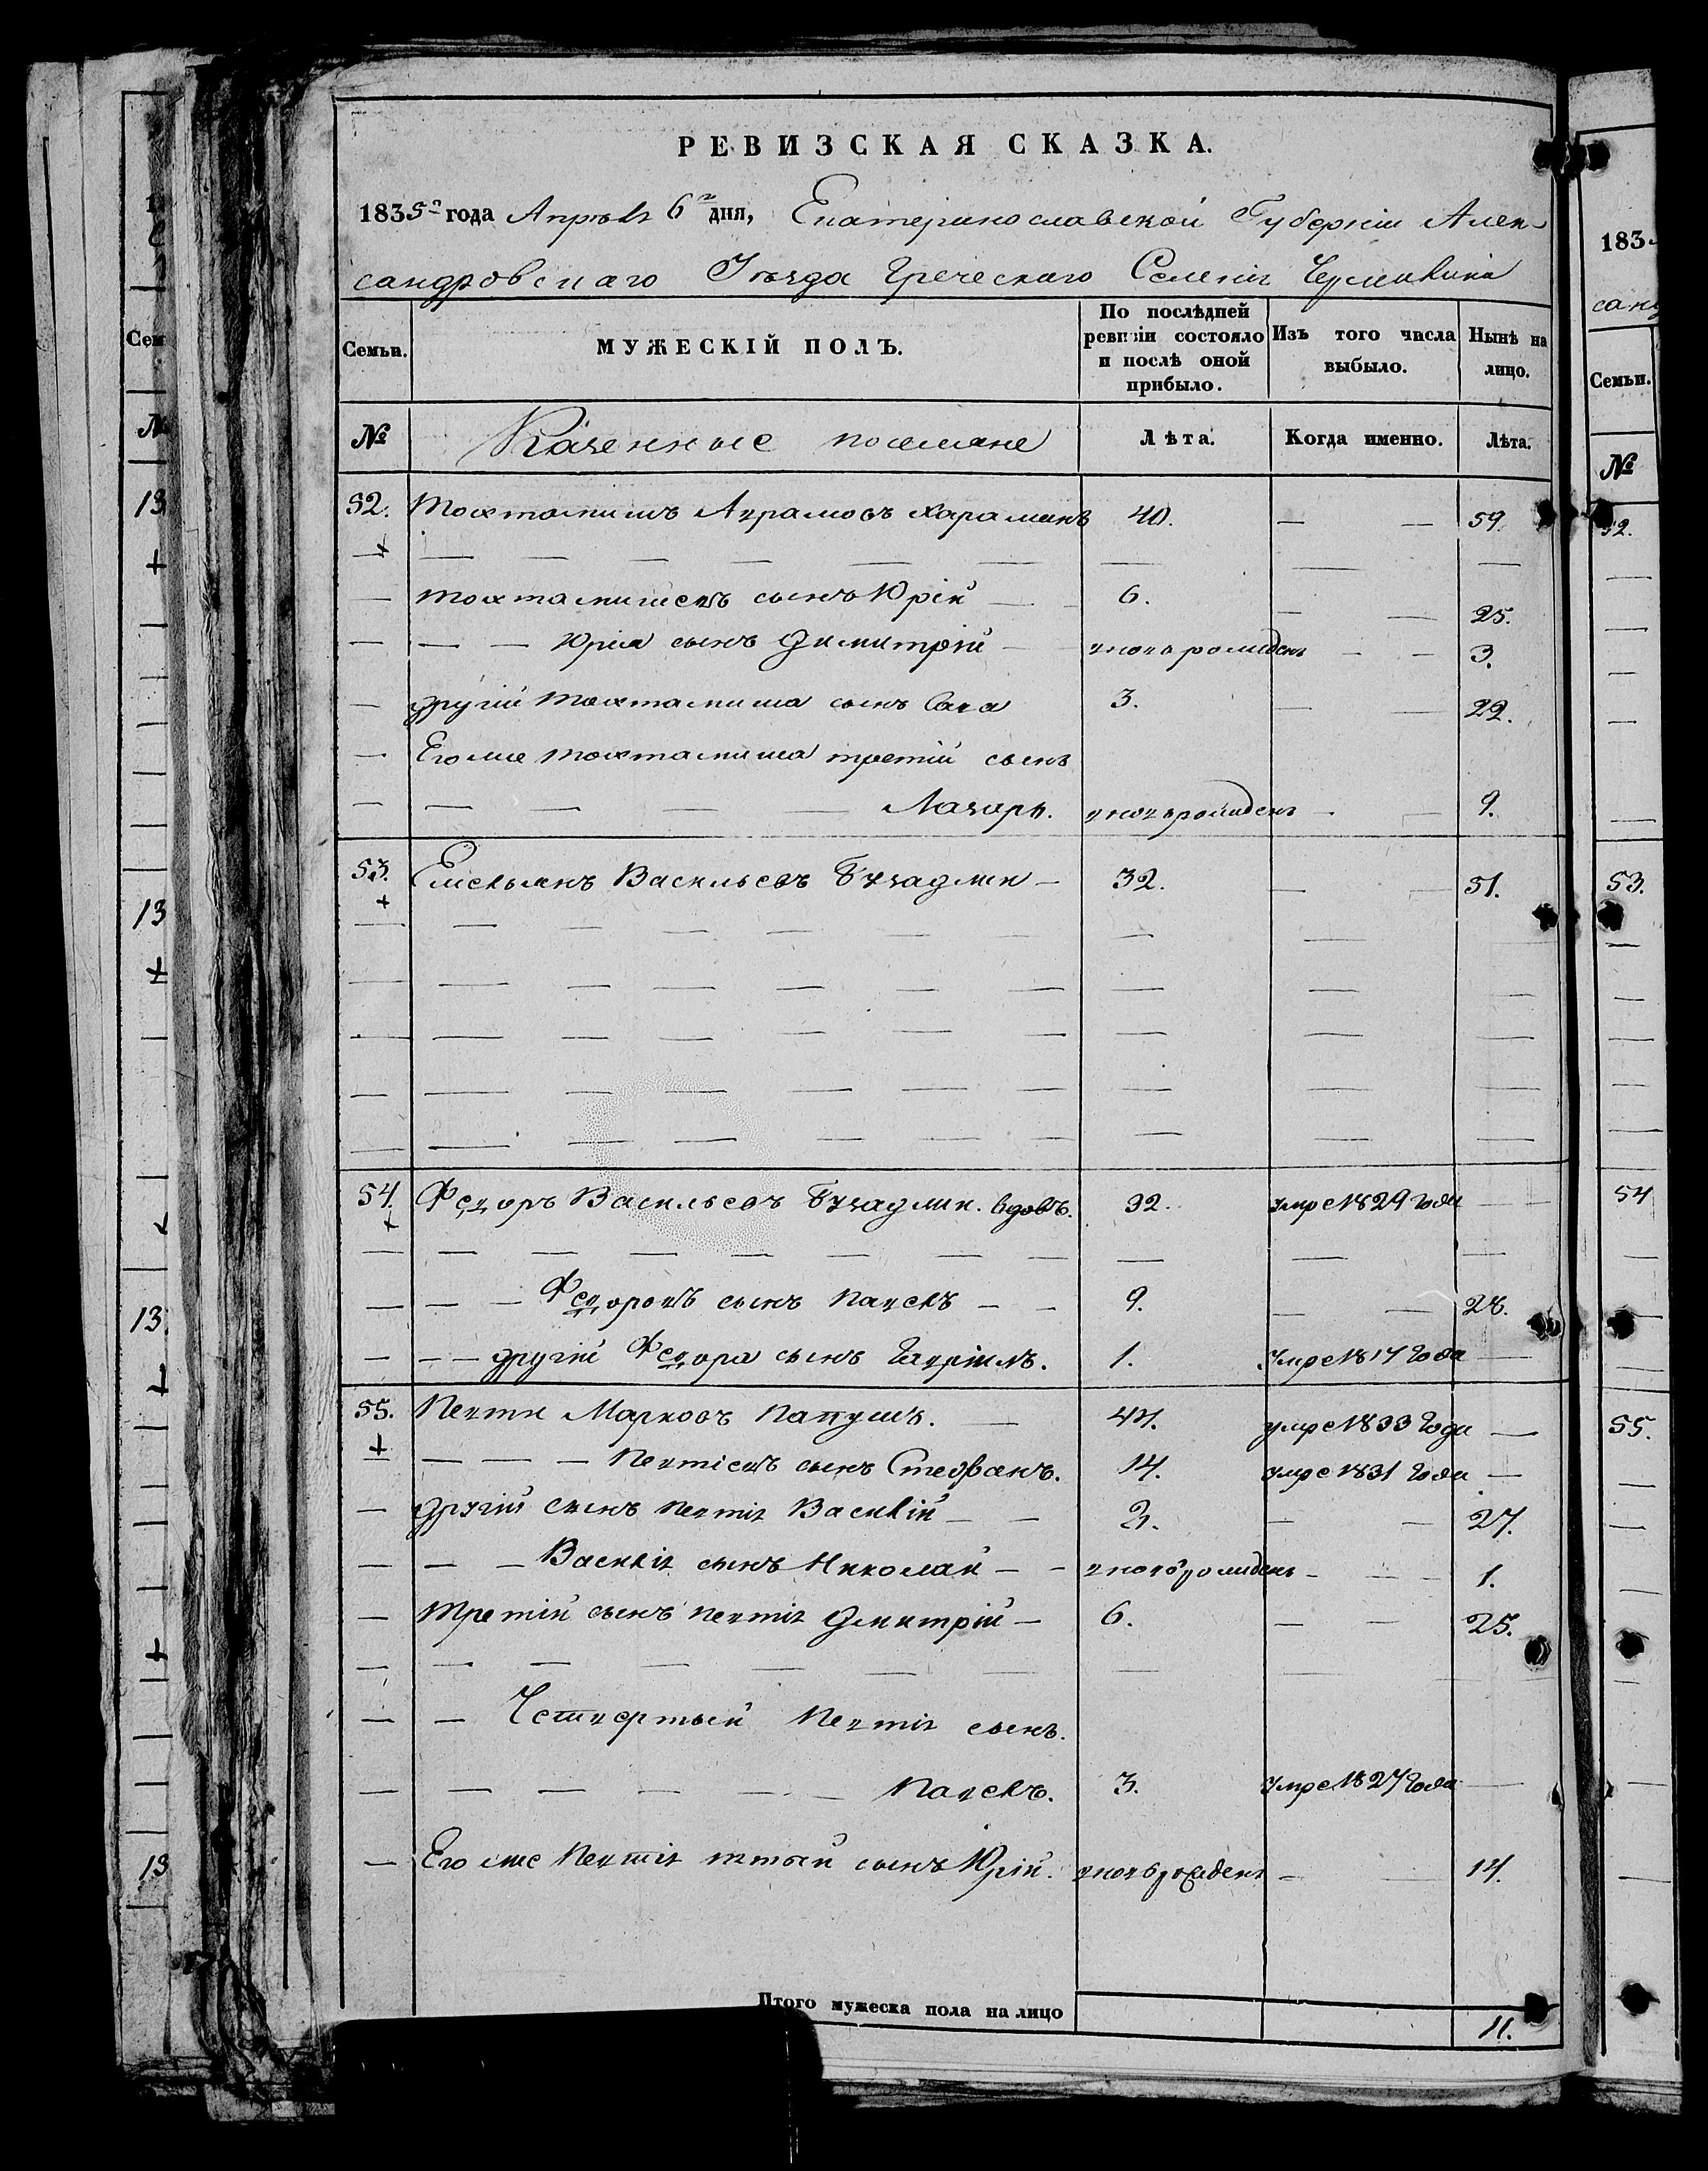 РЕВИЗСКАЯ СКАЗКА.
1835го года Апрѣля 6го дня, Екатеринославской Губерніи Алек-
сандровскаго Уѣзда Греческаго Селенія Чермалика
Семьи. МУЖЕСКІЙ ПОЛЪ. По послѣдней ревизіи состояло и послѣ оной прибыло. Изъ того числа выбыло. Нынѣ на лицо.
№ Казенные поселяне Лѣта. Когда именно. Лѣта.
52. Тохтамишъ Аврамовъ Хараманъ 40. — — 59.
Тохтамишевъ сынъ Юрій 6. — — 25.
— — Юрія сынъ Димитрій — вновьрожденъ — — 3.
другій Тохтамиша сынъ Сава 3. — — 22.
Егоже Тохтамиша третій сынъ
Лазарь. вновьрожденъ — — 9.
53. Емельянъ Васильевъ Бузаджи — 32. — — 51.
54. Федоръ Васильевъ Бузаджи. вдовъ. 32. умре 1829 года —
— — Федоровъ сынъ Павелъ — — 9. — — 28.
— — другій Федора сынъ Гавріилъ. 1. Умре 1817 года —
55. Певти Марковъ Папушъ. — 44. умре 1833 года —
— — — Певтіевъ сынъ Стефанъ. 14. умре 1831 года —
другій сынъ Певтія Василій — — 2. — — 27.
— — Василія сынъ Николай — — вновьрожденъ — — 1.
Третій сынъ Певтія Дмитрій — 6. — — 25.
— Четвертый Певтія сынъ.
Павелъ. 3. Умре 1827 года —
Егоже Певтія пятый сынъ Юрій. вновьрожденъ — — 14.
Итого мужеска пола на лицо 11.
183
Сем
№
13
13
13
13
Семьи.
№
52.
53.
54
55.